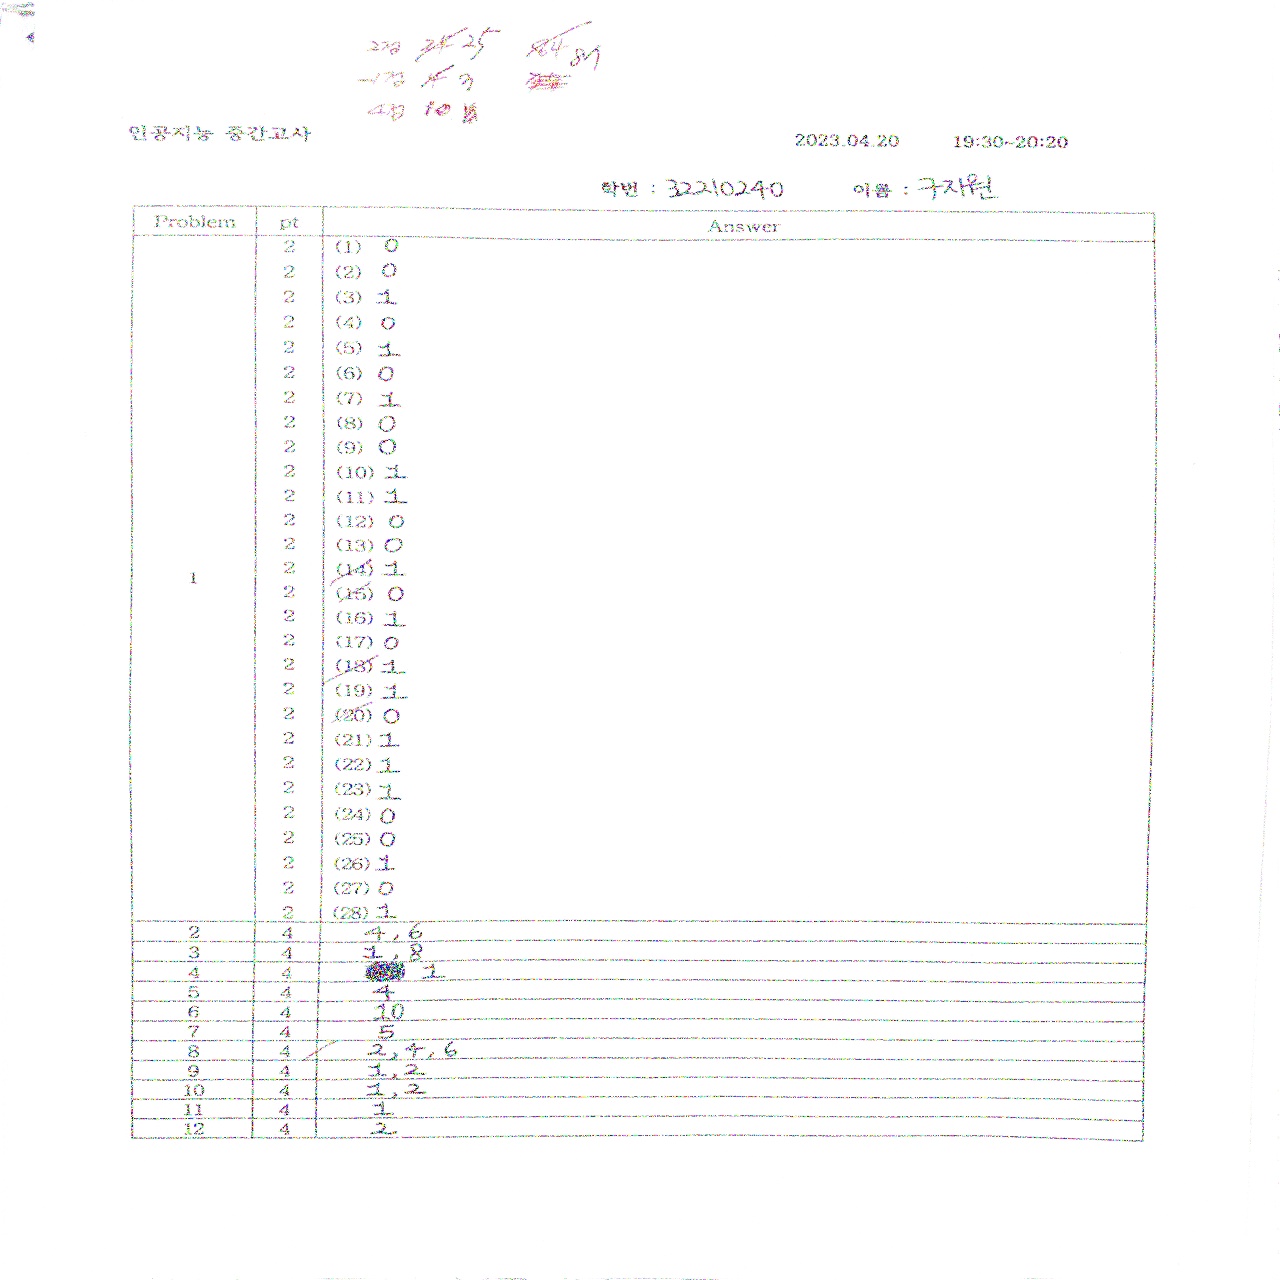 2점 25 84 87
-1점 4 3
4점 10
인공지능 중간고사
2023.04.20 19:30~20:20
학번 : 32210240 이름 : 구자원
Problem pt Answer
2 (1) 0
2 (2) 0
2 (3) 1
2 (4) 0
2 (5) 1
2 (6) 0
2 (7) 1
2 (8) 0
2 (9) 0
2 (10) 1
2 (11) 1
2 (12) 0
2 (13) 0
2 (14) 1
1
2 (15) 0
2 (16) 1
2 (17) 0
2 (18) 1
2 (19) 1
2 (20) 0
2 (21) 1
2 (22) 1
2 (23) 1
2 (24) 0
2 (25) 0
2 (26) 1
2 (27) 0
2 (28) 1
2 4 4, 6
3 4 1, 8
4 4 1
5 4 4
6 4 10
7 4 5
8 4 2, 4, 6
9 4 1, 2
10 4 1, 2
11 4 1
12 4 2